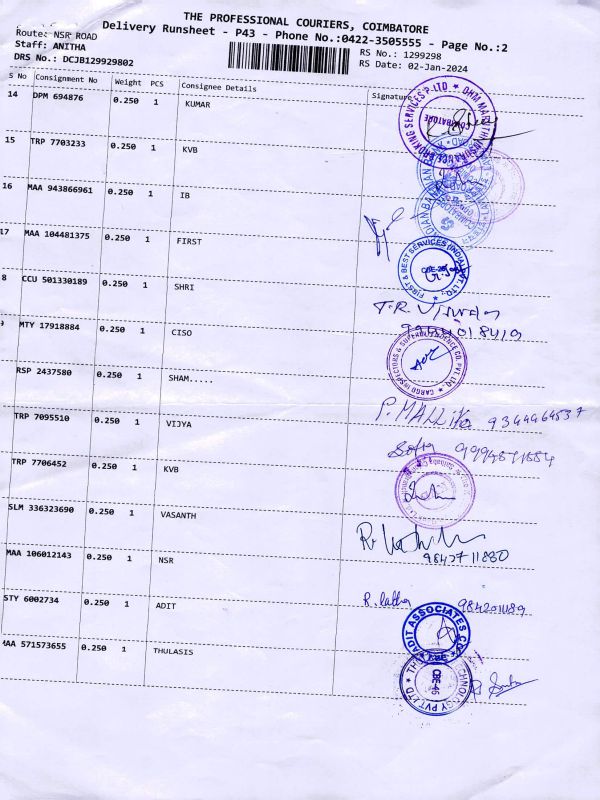 THE PROFESSIONAL COURIERS, COIMBATORE
Delivery Runsheet - P43 - Phone No.:0422-3505555 - Page No.:2
Route: NSR ROAD
Staff: ANITHA
RS No.: 1299298
DRS No.: DCJB129929802
RS Date: 02-Jan-2024
S No Consignment No Weight PCS Consignee Details Signature
14 DPM 694876 0.250 1 KUMAR
15 TRP 7703233 0.250 1 KVB
16 MAA 943866961 0.250 1 IB
17 MAA 104481375 0.250 1 FIRST
FIRST & BEST SERVICES (INDIA) PVT. LTD.
8 CCU 501330189 0.250 1 SHRI
T.R.
MTY 17918884 0.250 1 CISO
CARGO INSPECTORS & SUPERINTENDENCE CO. PVT. LTD.
RSP 2437580 0.250 1 SHAM.....
P. MALLIKA 9344464537
TRP 7095510 0.250 1 VIJYA
Sofia
TRP 7706452 0.250 1 KVB
SLM 336323690 0.250 1 VASANTH
9843711880
MAA 106012143 0.250 1 NSR
R. latha
STY 6002734 0.250 1 ADIT
ADIT ASSOCIATES
MAA 571573655 0.250 1 THULASIS